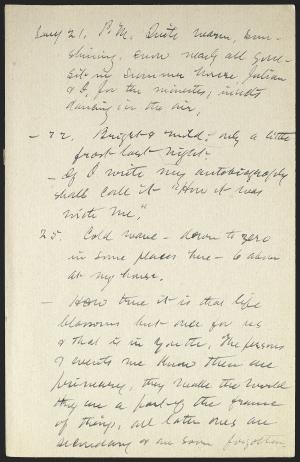 Jany 21, P.M. Quite warm, sun-
shining, snow nearly all gone.
Sit in Summer house, Julian
& I, for ten minutes; insects
dancing in the air.
- 22. Bright & mild; only a little
frost last night.
- If I write my autobiography
shall call it "How it was
with Me."
25. Cold wave - down to zero
in some places here - 6 above
at my house.
- How true it is that life
blossoms but once for us
& that is in youth. The persons
& events we know then are
primary, they make the world
they are a part of the frame
of things, all later ones are
secondary & are soon forgotten